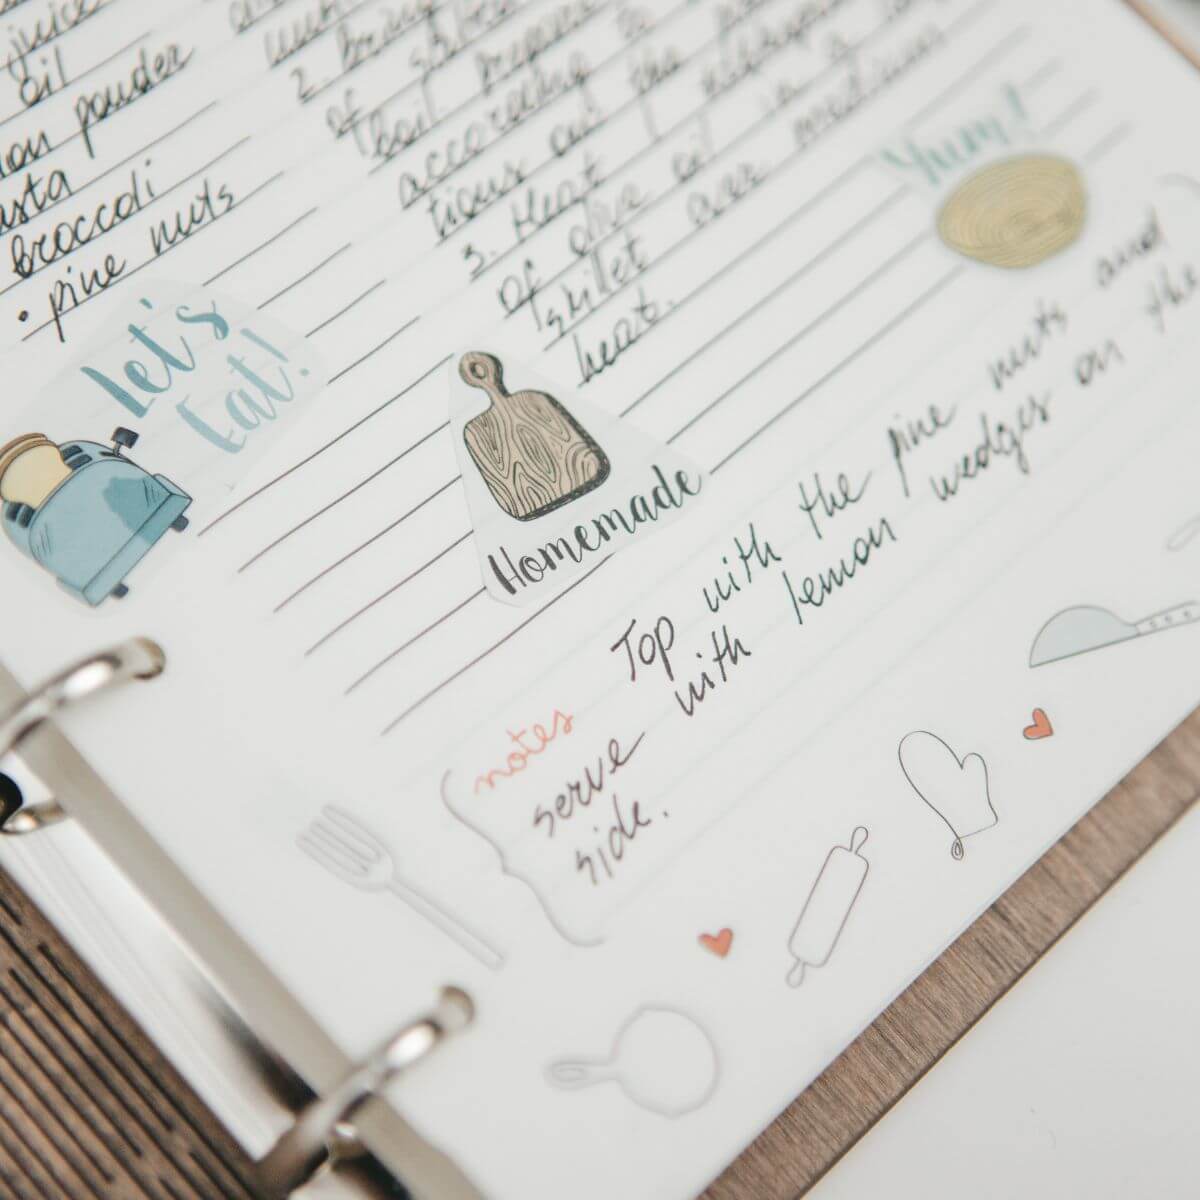 juice
oil
powder
asta
broccoli
• pine nuts
2. Bring
of
boil. Prepare
according to
tions on the
3. Heat
of olive oil in a
skillet over medium
heat.
Yum!
Let's
Eat!
Homemade
notes
Top with the pine nuts and
serve with lemon wedges on the
side.